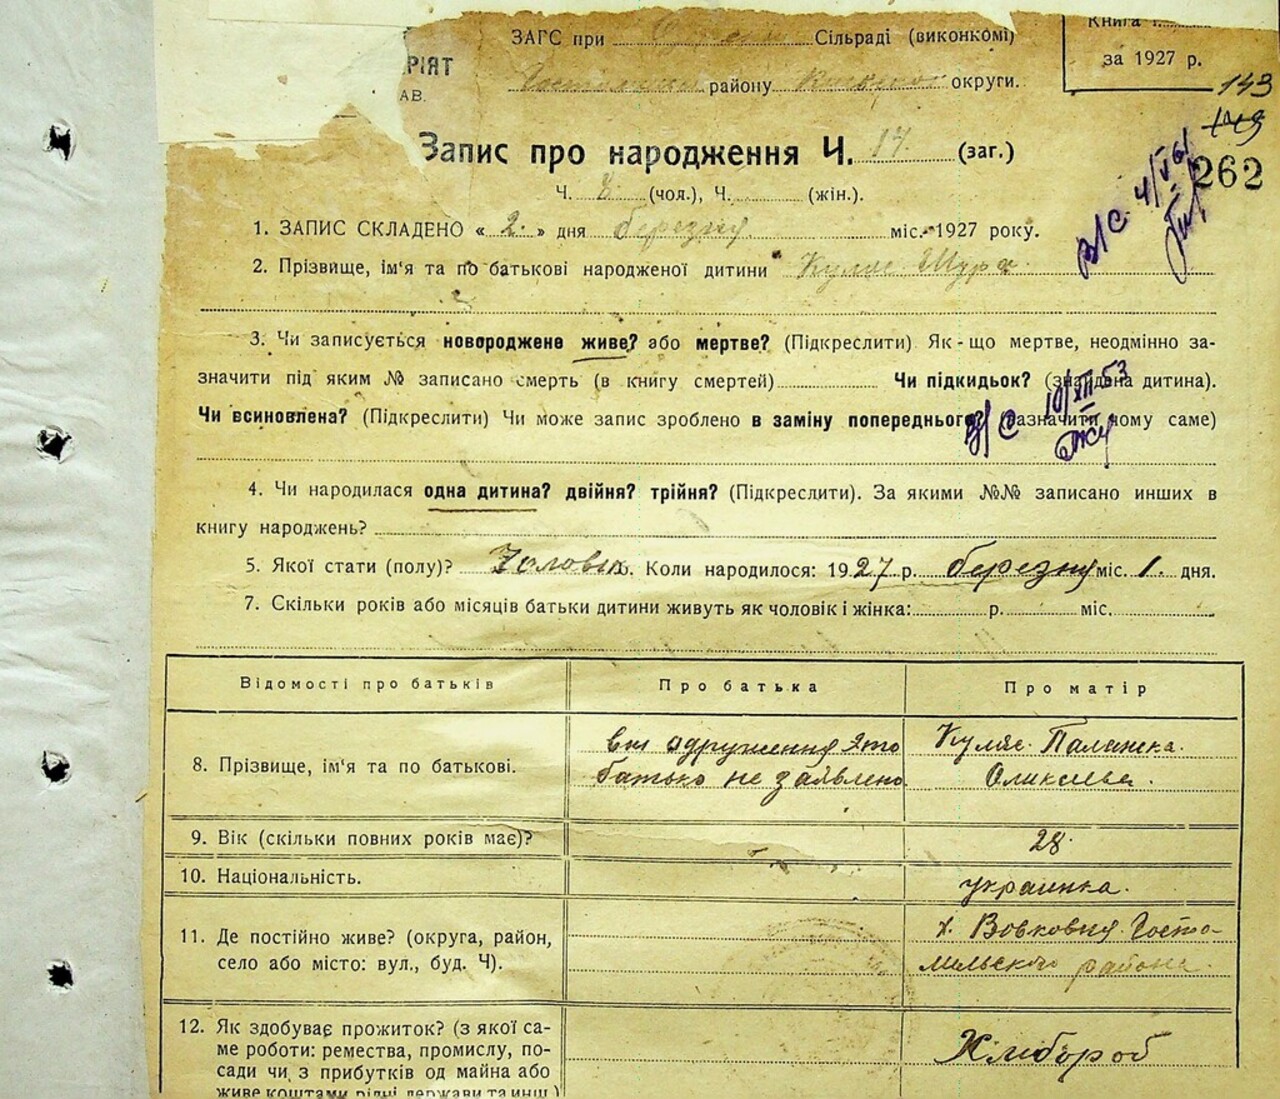 ЗАГС при Сільраді (виконкомі)
Книга
РІЯТ
за 1927 р.
АВ.
району округи.
143
149
Запис про народження Ч. 17. (заг.)
262
Ч. 8 (чол.), Ч. (жін.).
В/С 4/VI 61
1. ЗАПИС СКЛАДЕНО « 2. » дня березня міс. 1927 року.
2. Прізвище, ім'я та по батькові народженої дитини Куляс Шура
3. Чи записується новороджене живе? або мертве? (Підкреслити) Як-що мертве, неодмінно за-
значити під яким № записано смерть (в книгу смертей) Чи підкидьок? (знайдена дитина).
Чи всиновлена? (Підкреслити) Чи може запис зроблено в заміну попереднього? (Зазначити чому саме)
В/С 10/XII 53
4. Чи народилася одна дитина? двійня? трійня? (Підкреслити). За якими №№ записано инших в
книгу народжень?
5. Якої стати (полу)? Чоловік. Коли народилося: 1927 р. березня міс. 1. дня.
7. Скільки років або місяців батьки дитини живуть як чоловік і жінка: р. міс.
Відомості про батьків Про батька Про матір
8. Прізвище, ім'я та по батькові. батько не заявлено Куляс
9. Вік (скільки повних років має)? 28.
10. Національність. украинка.
11. Де постійно живе? (округа, район, х. Вовковня Госто-
село або місто: вул., буд. Ч). мильского района.
12. Як здобуває прожиток? (з якої са- Хлибороб
ме роботи: ремества, промислу, по-
сади чи з прибутків од майна або
живе коштами рідні держави та инш.)